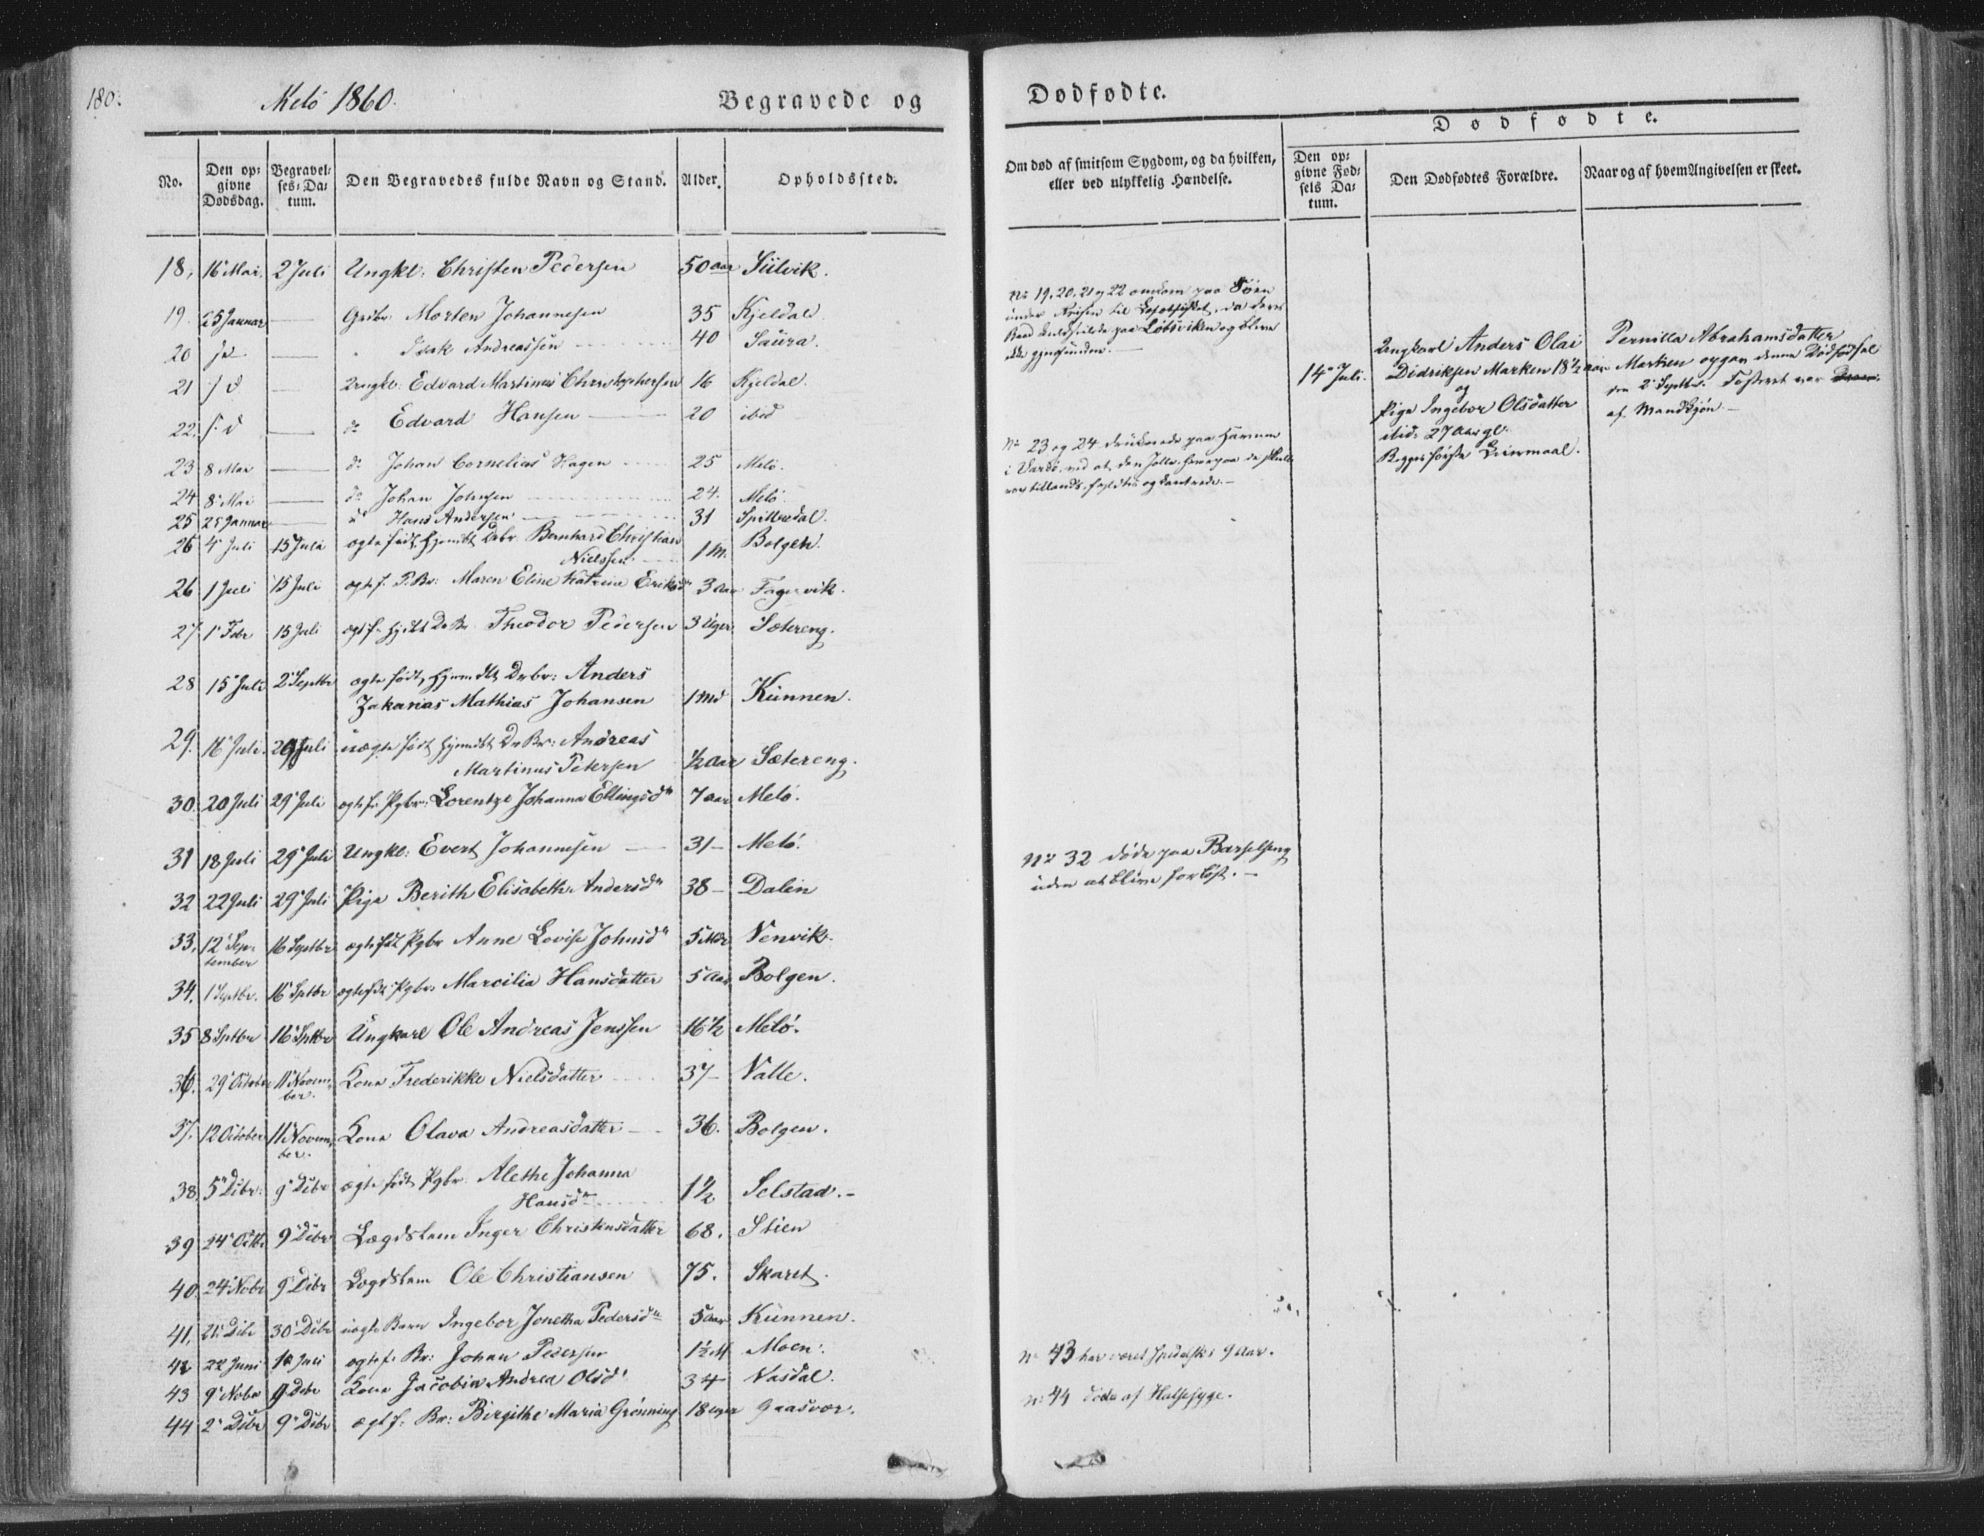 180.
Melö 1860.
Begravede og
No.
Den op-
givne
Dødsdag.
Begravel-
ses-Da-
tum.
Den Begravedes fulde Navn og Stand.
Alder.
Opholdssted.
18. 16 Mai. 2 Juli Ungkl: Christen Pedersen 50 aar Siilvik.
19. 25 Januar Morten Johannesen 35 Kjeldal.
20 Isak Andreassen 40 Saura.
21 Ungkl: Edvard Martinus Christophersen 16 Kjeldal.
22. do Edvard Hansen 20 ibid
23 8 Mai do Johan Cornelius Hagen 25 Melö.
24 8 Mai do Johan Johnsen 24. Melö.
25 25 Januar do Hans Andersen 31 Spilderdal.
26 4 Juli 15 Juli ægte født hjemdbt Drbr. Bernhard Christian
Nielssen 1 M. Bolgen.
26 1 Juli 15 Juli ægtef. P.Br: Maren Eline Katrina Eriksd 3 aar Fagervik.
27. 1 Febr 15 Juli ægtf. hjdbt DrBr Theodor Pedersen 3 Uger Sætereng.
28 15 Juli 2 Septbr ægte født, hjemdbt Drbr: Anders
Zakarias Mathias Johansen 1 Md Kunnen.
29. 16 Juli. 29 Juli uægte født hjemdbt DrBr: Andreas
Martinus Petersen ½ aar Sætereng.
30. 20 Juli 29 Juli ægtef. Pgbr: Lorentze Johanna Ellingsdr 7 aar Melö.
31 18 Juli 29 Juli Ungkl: Evert Johannesen 31 - Melö.
32 22 Juli 29 Juli Pige Berith Elisabeth Andersdr 38 - Dalen
33. 12 Sep-
tember 16 Septbr ægtefdt Pgbr Anne Lovise Johnsdr 5 Venvik.
34. 1 Septbr. 16 Sptbr ægtefdt Pgbr. Marcilia Hansdatter 5 aar Bolgen.
35 8 Sptbr 16 Sptbr Ungkarl Ole Andreas Jenssen 16½ Melö.
36. 29 October 11 Novem-
ber. Kona Frederikke Nielsdatter 37 - Valle.
37. 12 October 11 Novem-
ber. Kona Olava Andreasdatter 36. Bolgen.
38. 5 Dcbr. 9 Dcbr ægte født Pgbr. Alethe Johanna
Hansdr 1½ Selstad.-
39 24 Octbr 9 Dcbr Lægdslem Inger Christensdatter 68. Stien
40. 24 Nobr 9 Dcbr Lægdslem Ole Christiansen 75. Skaret.
41. 21 Dcbr 30 Dcbr uægte Barn Ingebor Jonetha Pedersdr 5 aar Kunnen.
42 22 Juni 1 Juli ægtef. Br: Johan Pedersen 1½ M Moen.
43 9 Nobr 9 Dcbr Kona Jacobia Andrea Olsd 34 Nasdal.
44 2 Dcbr 9 Dcbr ægtf: Br: Birgithe Maria Grønning 18 uger Gaasvær.
Dødfødte.
Om død af smitsom Sygdom, og da hvilken,
eller ved ulykkelig Hændelse.
Dødfødte.
Den op-
givne Fød-
sels Da-
tum.
Den Dødfødtes Forældre.
Naar og af hvem Angivelsen er skeet.
No 19, 20, 21 og 22 omkom paa Söen
under Reisen til Lofotfisket, da deres
Baad kuldseilede paa og bleve
ikke gjenfundne.-
No 23 og 24 druknede paa Havnen
i Vardö, ved at den Jolle, hvorpaa de skulle
No 32 döde paa Barselseng
uden at blive forlöst.-
No 43 har været spedalsk i 9 Aar.
No 44 döde af Halssyge.
14 Juli.
Ungkarl Anders Olai
Didriksen Marken 18½ aar
og
Pige Ingebor Olsdatter
ibid. 27 Aar gl.
Begges förste Leiermaal.
Pernilla Abrahamsdatter
Marken opgav denne Dödfödsel
den 2 Septbr. Fosteret var
af Mandkjön.-